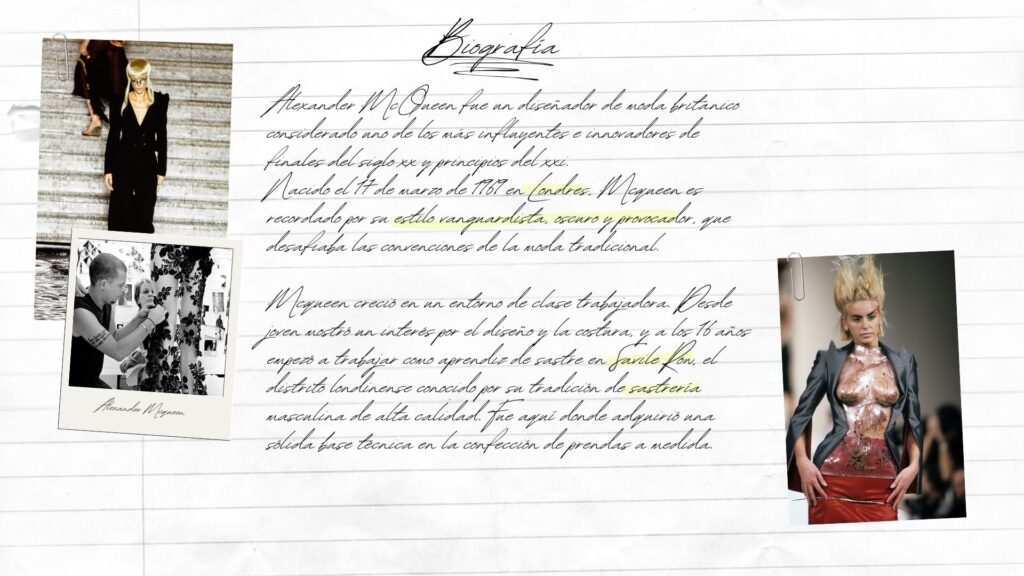 Biografía
Alexander McQueen fue un diseñador de moda británico
considerado uno de los más influyentes e innovadores de
finales del siglo xx y principios del xxi.
Nacido el 17 de marzo de 1969 en Londres, Mcqueen es
recordado por su estilo vanguardista, oscuro y provocador, que
desafiaba las convenciones de la moda tradicional.
Mcqueen creció en un entorno de clase trabajadora. Desde
joven mostró un interés por el diseño y la costura, y a los 16 años
empezó a trabajar como aprendiz de sastre en Savile Row, el
distrito londinense conocido por su tradición de sastrería
masculina de alta calidad. Fue aquí donde adquirió una
sólida base técnica en la confección de prendas a medida.
Alexander Mcqueen